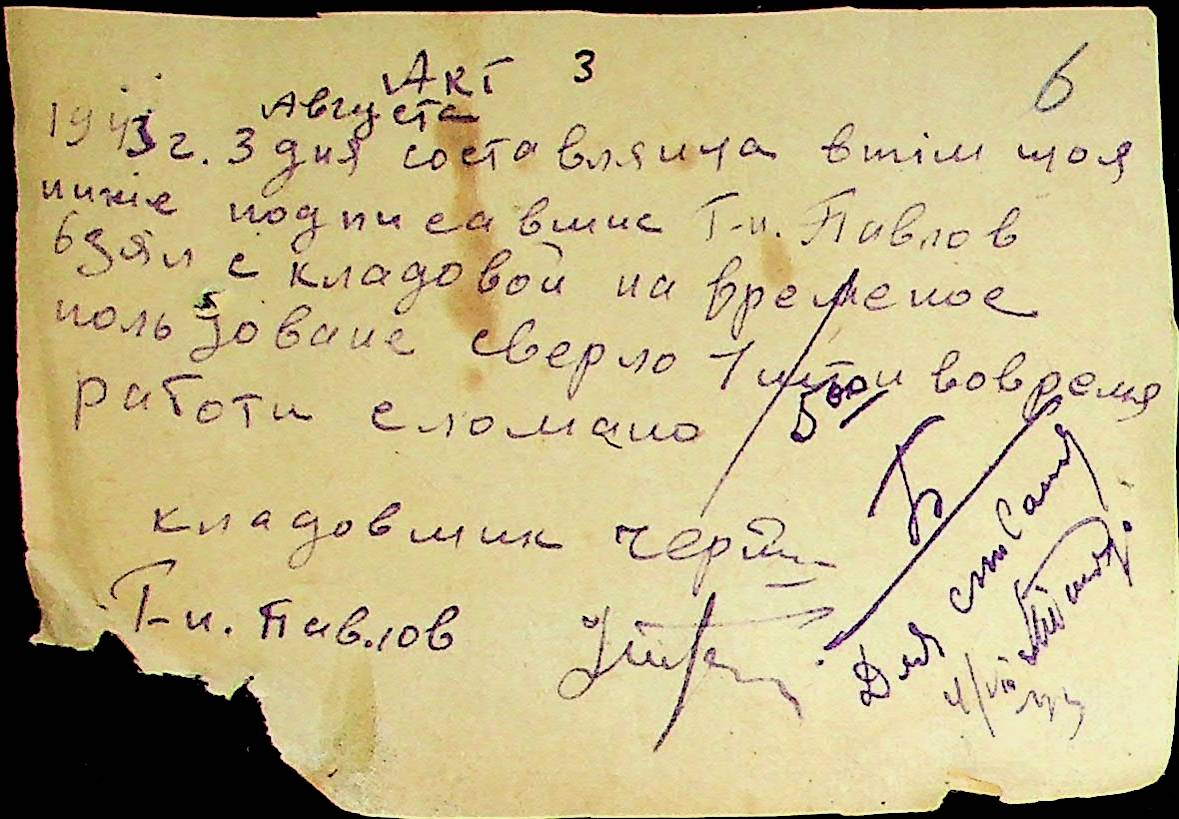 Акт 3
6
Августа
1943 г. 3 дня составляица втім щоя
ниже подписавшис Г-н. Павлов
взял с кладовой на временое
пользоване сверло 1 штои вовремя
работи сломано 5
кладовшик
Г-н. Павлов
Б
Для списания